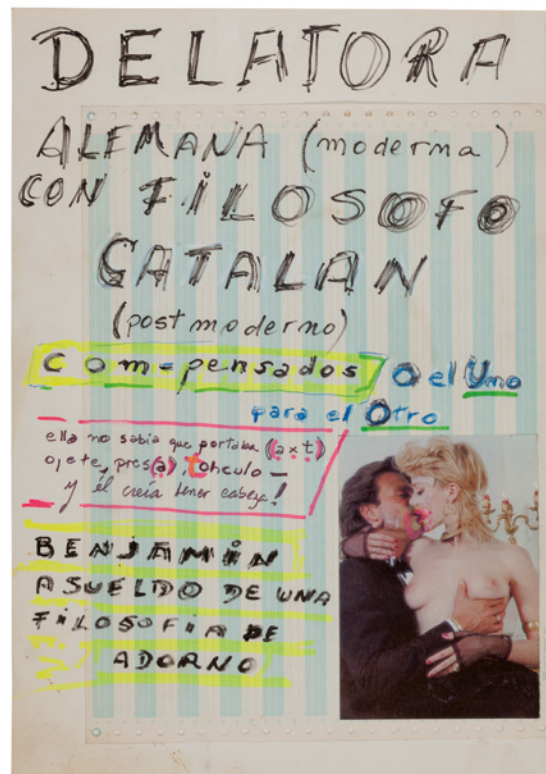 DELATORA
ALEMANA (moderna)
CON FILOSOFO
CATALAN
(postmoderno)
Com-pensados / O el Uno
para el Otro
ella no sabia que portaba (axt)
ojete, pres(a), tohculo —
y él creía tener cabeza!
BENJAMIN
ASUELDO DE UNA
FILOSOFIA DE
ADORNO